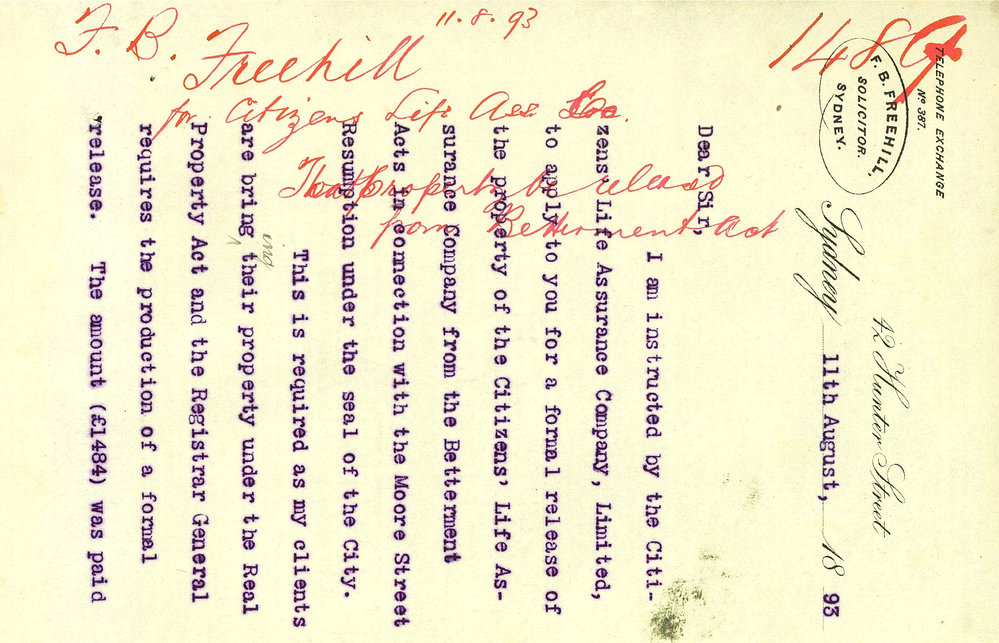 TELEPHONE EXCHANGE
Nº 387.
F. B. FREEHILL,
SOLICITOR.
SYDNEY.
42 Hunter Street
Sydney 11th August, 18 93
Dear Sir,
I am instructed by the Citi-
zens' Life Assurance Company, Limited,
to apply to you for a formal release of
the property of the Citizens' Life As-
surance Company from the Betterment
Acts in connection with the Moore Street
Resumption under the seal of the City.
This is required as my clients
are bring^ing their property under the Real
Property Act and the Registrar General
requires the production of a formal
release. The amount (£1484) was paid
11.8.93
F. B. Freehill
for Citizens Life Ass
That property be released
from Betterment Act